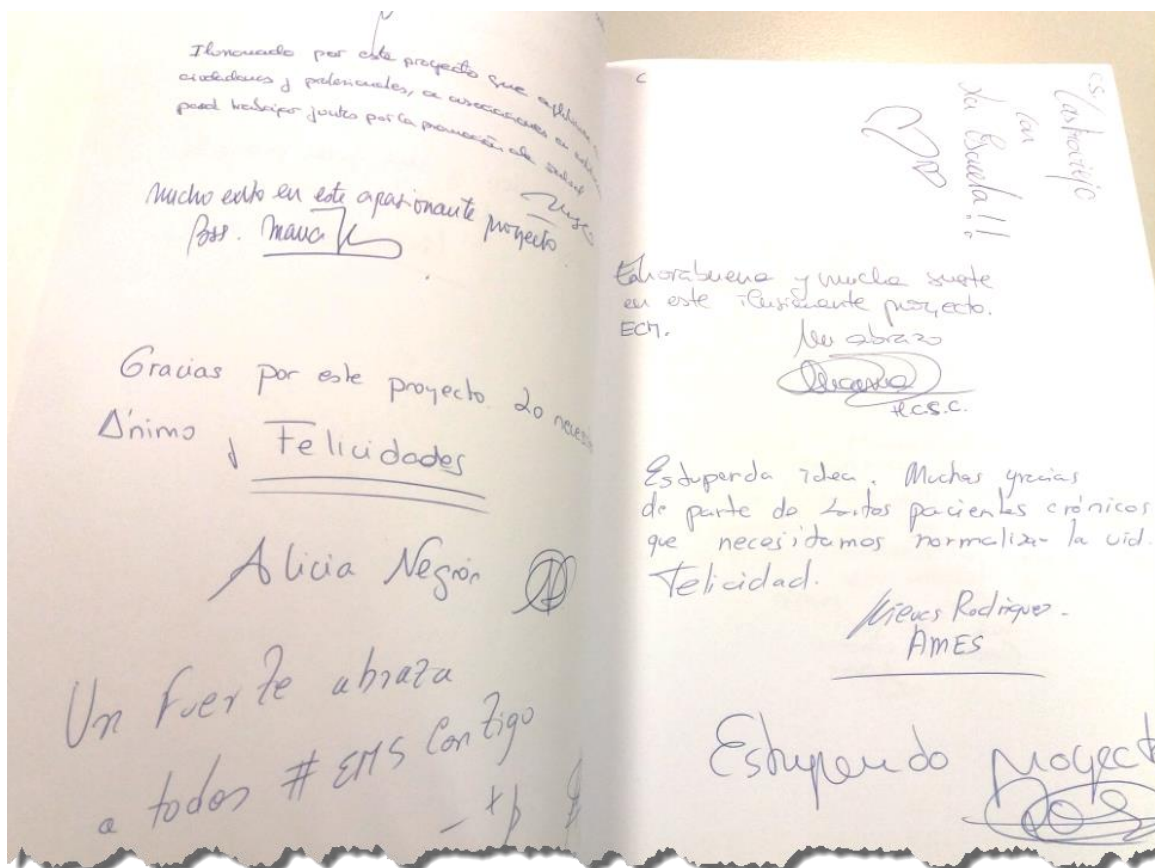 Ilusionado por este proyecto que
ciudadanos y profesionales, a asociaciones
para trabajar juntos por la promoción de salud
Mucho exito en este apasionante proyecto.
Bss.
Gracias por este proyecto. Lo
Ánimo y Felicidades
Alicia Negrón
Un fuerte abrazo
a todos # EMS Contigo
CS. Castroviejo
con
La Escuela!!
Enhorabuena y mucha suerte
en este ilusionante proyecto.
ECM.
Un abrazo
H.C.S.C.
Estupenda idea. Muchas gracias
de parte de tantos pacientes crónicos
que necesitamos normalizar la vid.
Felicidad.
Nieves Rodríguez.
AMES
Estupendo proyecto